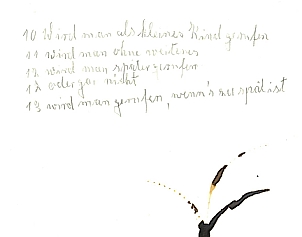 10 Wird man als kleines Kind gerufen
11 wird man ohne weiteres
12 wird man später gerufen
12 oder gar nicht
13 wird man gerufen, wenn's zu spät ist